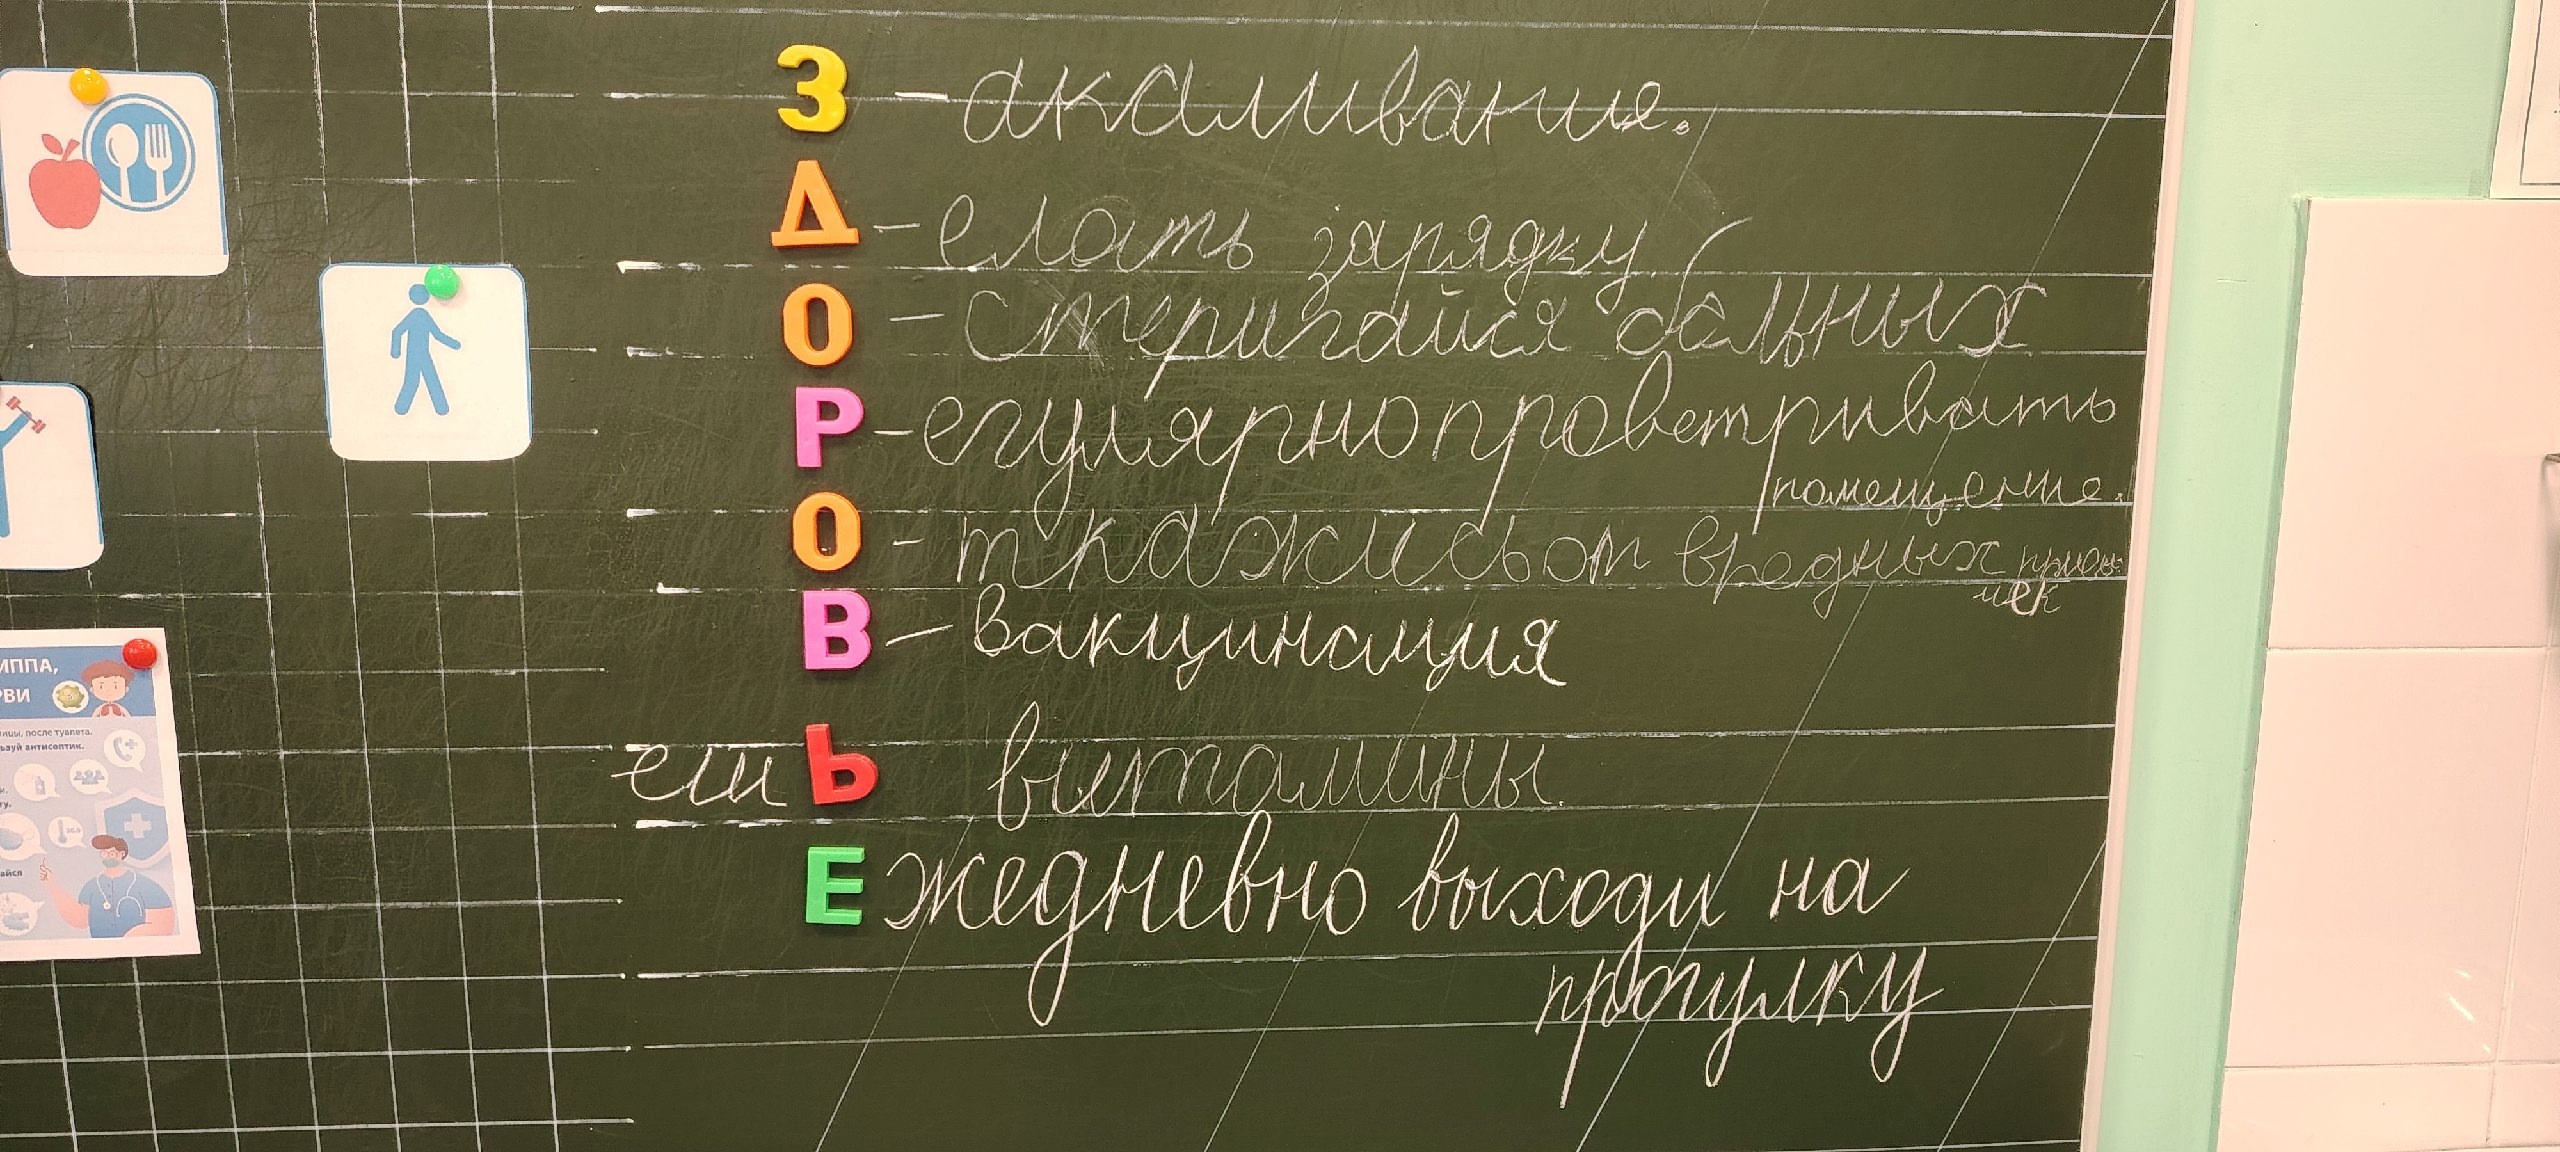 З - акаливание.
Д - елать зарядку.
О - стеригайся больных
Р - егулярно проветривать
помещение.
О - ткажись от вредных привы-
чек
В - вакцинация
ешЬ витамины.
Ежедневно выходи на
прогулку
ИППА,
РВИ
ицы, после туалета.
ьзуй антисептик.
айся